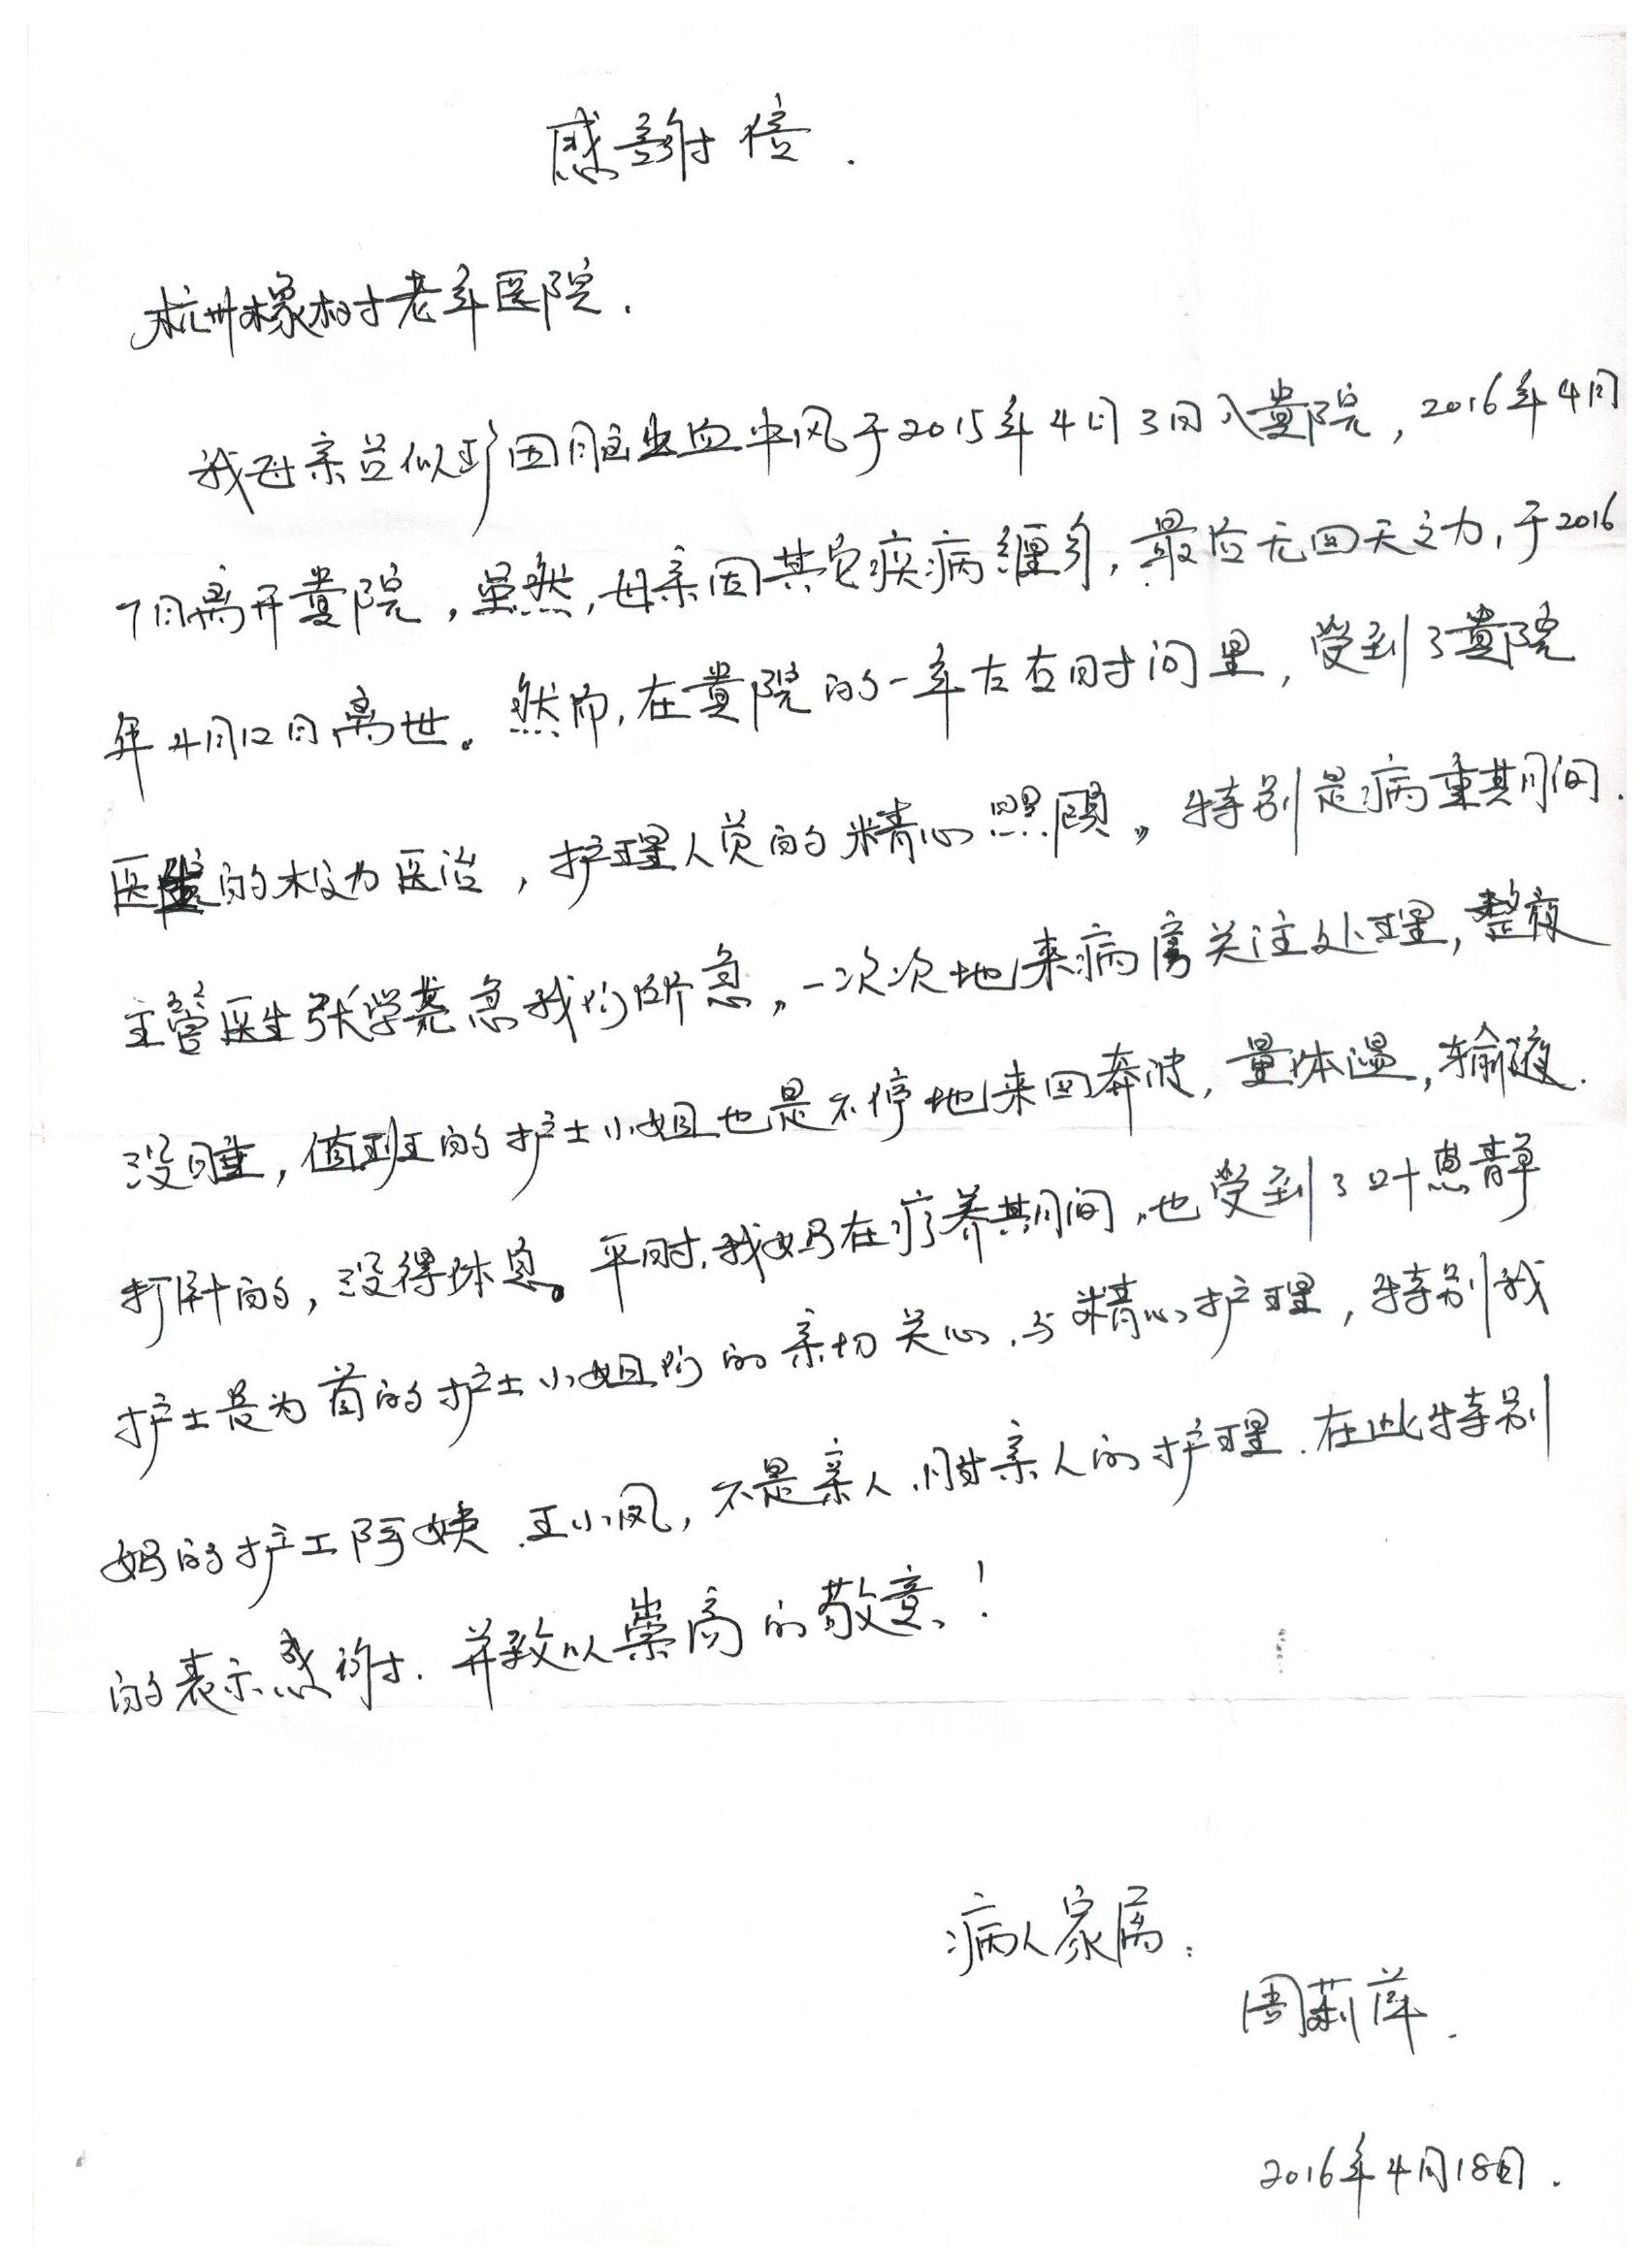 感謝信.
杭州橡树老年医院.
我母亲兰似珍因脑出血中风于2015年4月3日入貴院，2016年4月
7日离开貴院，虽然，母亲因其它疾病缠身，最后无回天之力，于2016
年4月12日离世。然而，在貴院的一年左右时间里，受到了貴院
医生的极为医治，护理人员的精心照顾。特别是病重期间.
主管医生张学亮急我们所急，一次次地来病房关注处理，整夜
没睡，值班的护士小姐也是不停地来回奔波，量体温，输液.
打针的，没得休息。平时，我妈在疗养期间，也受到了叶惠静
护士长为首的护士小姐们的亲切关心，与精心护理，特别我
妈的护工阿姨.王小凤，不是亲人，胜亲人的护理.在此特别
的表示感谢.并致以崇高的敬意！
病人家属：
周莉萍.
2016年4月18日.